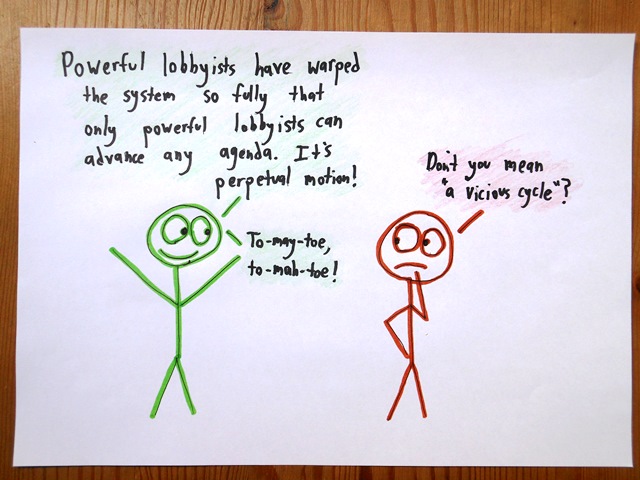 Powerful lobbyists have warped
the system so fully that
only powerful lobbyists can
advance any agenda. It's
perpetual motion!
Don't you mean
"a vicious cycle"?
To-may-toe,
to-mah-toe!